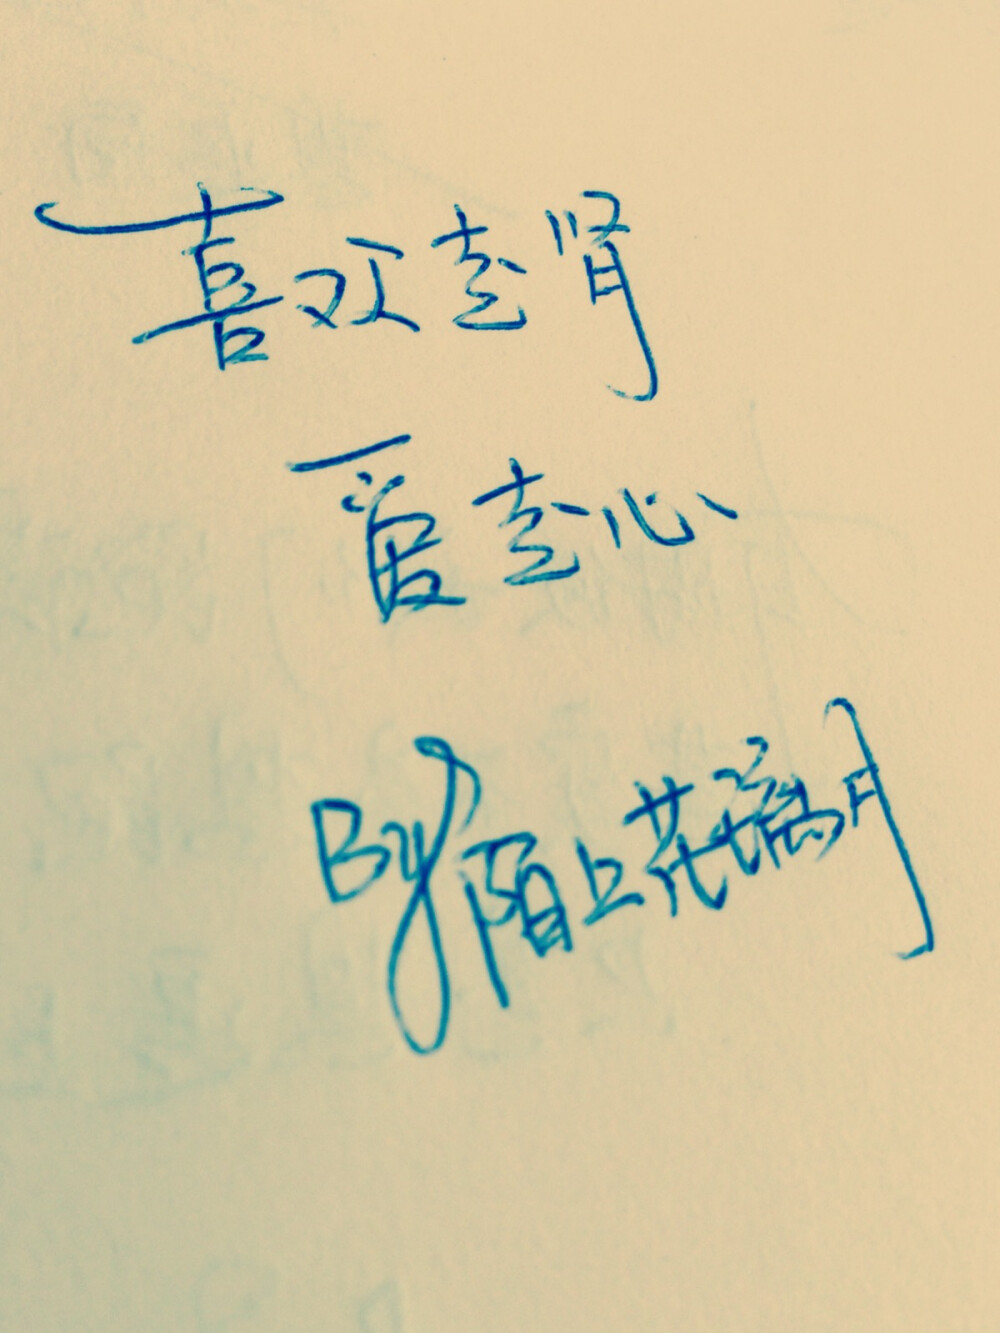 喜欢走肾
爱走心
By陌上花璃月